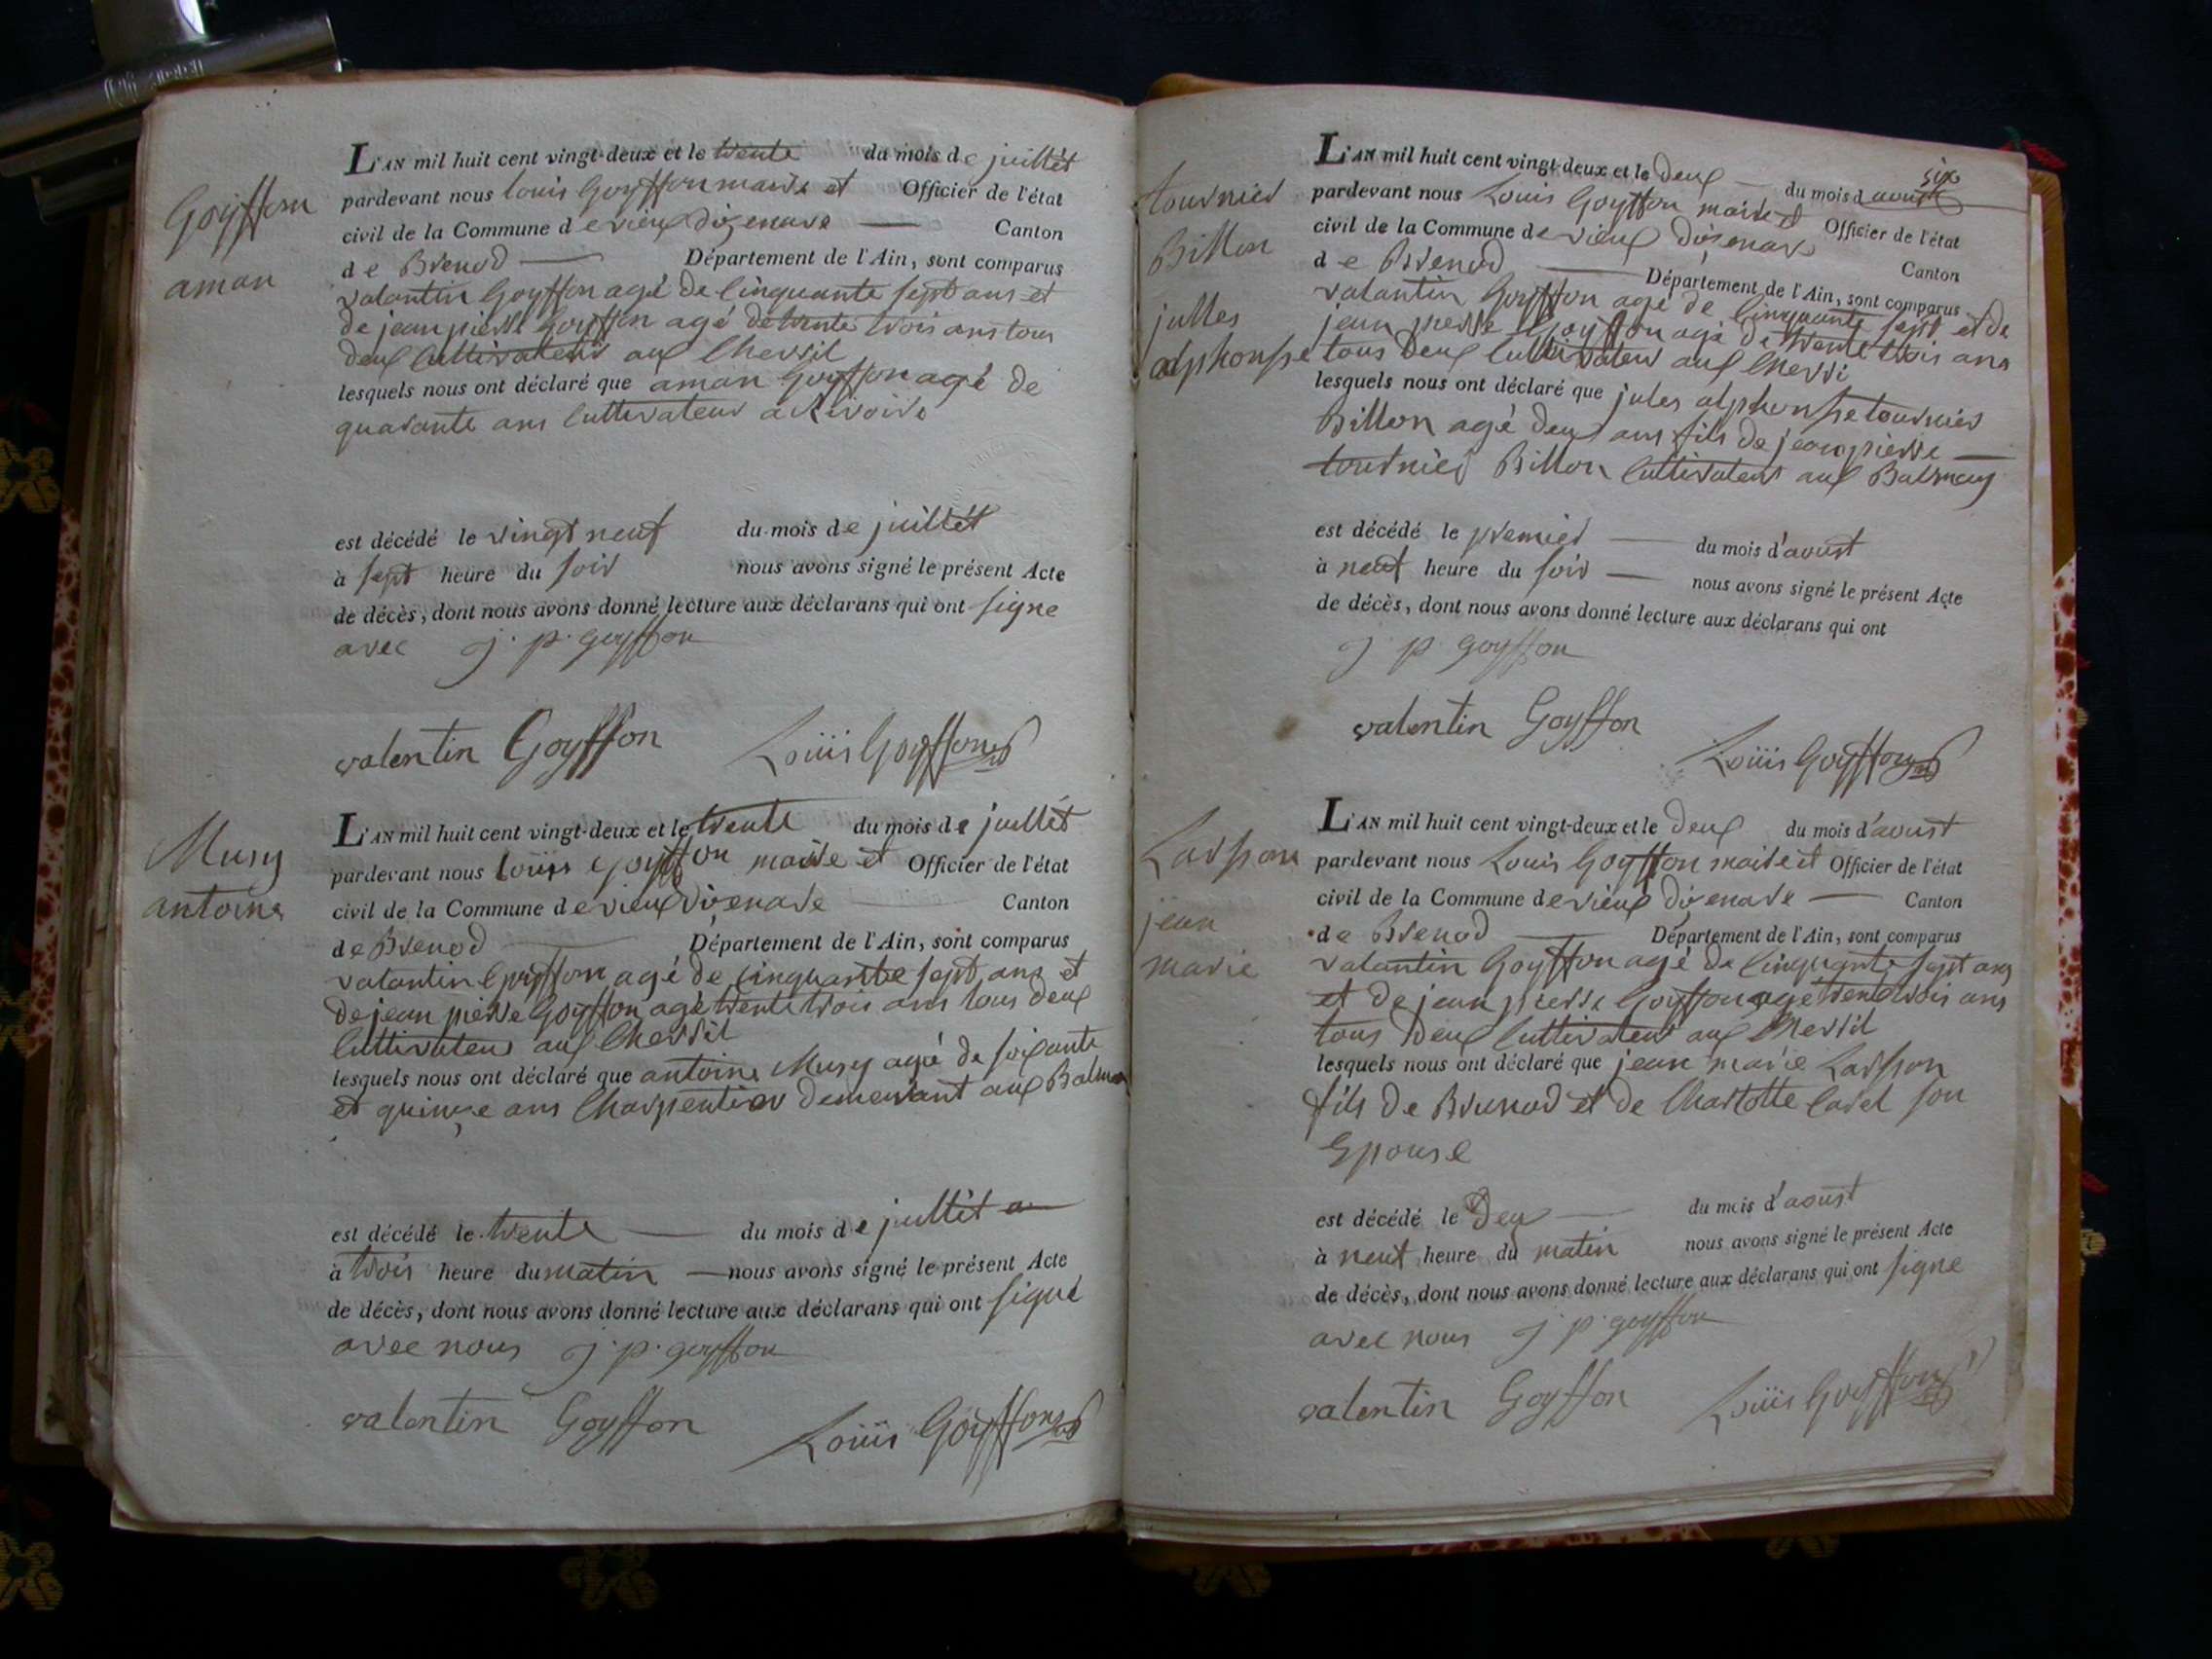 Goyffon
aman
L'AN mil huit cent vingt-deux et le trente du mois de juillet
pardevant nous louis Goyffon maire et Officier de l'état
civil de la Commune de vieux dizenave Canton
de Brenod Département de l'Ain, sont comparus
valantin Goyffon agé de cinquante sept ans et
de jean pierre Goyffon agé de trente trois ans tous
deux cultivateur aux Chevril
lesquels nous ont déclaré que aman Goyffon agé de
quarante ans cultivateur a
est décédé le vingt neuf du mois de juillet
à sept heure du soir nous avons signé le présent Acte
de décès, dont nous avons donné lecture aux déclarans qui ont signe
avec j. p. goyffon
valentin Goyffon Loüis Goyffon
Musy
antoine
L'AN mil huit cent vingt-deux et le trente du mois de juillet
pardevant nous loüis Goyffon maire et Officier de l'état
civil de la Commune de vieux dizenave Canton
de Brenod Département de l'Ain, sont comparus
valantin Goyffon agé de cinquante sept ans et
de jean pierre Goyffon agé trente trois ans tous deux
cultivateur aux Chevril
lesquels nous ont déclaré que antoine Musy agé de soixante
et quinze ans Charpentier demeurant aux
est décédé le trente du mois de juillet
à trois heure du matin nous avons signé le présent Acte
de décès, dont nous avons donné lecture aux déclarans qui ont signé
avec nous j. p. goyffon
valentin Goyffon Loüis Goyffon
six
tournier
Billon
julles
alphonse
L'AN mil huit cent vingt-deux et le deux du mois d'aoust
pardevant nous Louis Goyffon maire et Officier de l'état
civil de la Commune de vieux dizenave Canton
de Brenod Département de l'Ain, sont comparus
valantin Goyffon agé de cinquante sept et de
jean pierre Goyffon agé de trente trois ans
tous deux cultivateur aux Chevri
lesquels nous ont déclaré que jules alphonse tournier
Billon agé deux ans fils de jean pierre
tournier Billon cultivateur aux Balmay
est décédé le premier du mois d'aoust
à neuf heure du soir nous avons signé le présent Acte
de décès, dont nous avons donné lecture aux déclarans qui ont
j p goyffon
valentin Goyffon
Loüis Goyffon
Larson
jean
marie
L'AN mil huit cent vingt-deux et le deux du mois d'aoust
pardevant nous Louis Goyffon maire et Officier de l'état
civil de la Commune de vieux dizenave Canton
de Brenod Département de l'Ain, sont comparus
valantin Goyffon agé de cinquante sept ans
et de jean pierre Goyffon agé trente trois ans
tous deux cultivateur aux Chevril
lesquels nous ont déclaré que jean marie Larson
fils de Brunod et de Charlotte son
Epouse
est décédé le deux du mois d'aoust
à neuf heure du matin nous avons signé le présent Acte
de décès, dont nous avons donné lecture aux déclarans qui ont signe
avec nous j. p. goyffon
valentin Goyffon Loüis Goyffon